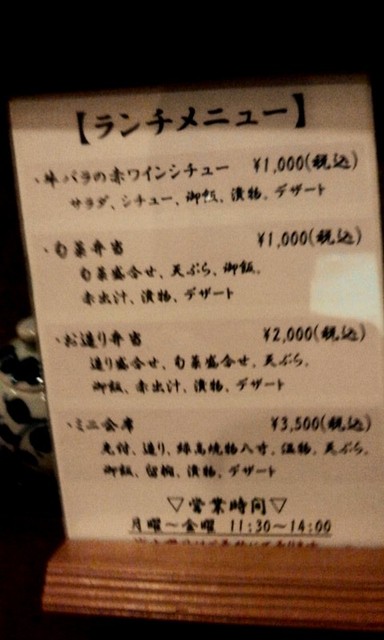 【ランチメニュー】
・牛バラの赤ワインシチュー ¥1,000(税込)
サラダ、シチュー、御飯、漬物、デザート
・旬菜弁当 ¥1,000(税込)
旬菜盛合せ、天ぷら、御飯、
赤出汁、漬物、デザート
・お造り弁当 ¥2,000(税込)
造り盛合せ、旬菜盛合せ、天ぷら、
御飯、赤出汁、漬物、デザート
・ミニ会席 ¥3,500(税込)
先付、造り、縁高焼物八寸、温物、天ぷら、
御飯、留椀、漬物、デザート
▽営業時間▽
月曜～金曜 11:30～14:00